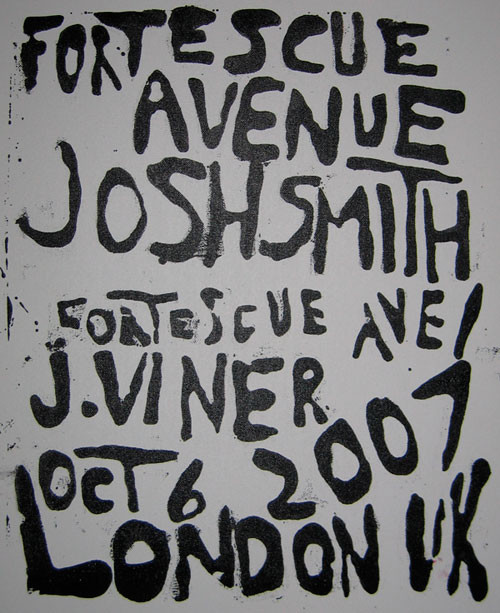 FORTESCUE
AVENUE
JOSH SMITH
FORTESCUE AVE/
J. VINER
OCT 6 2007
LONDON UK